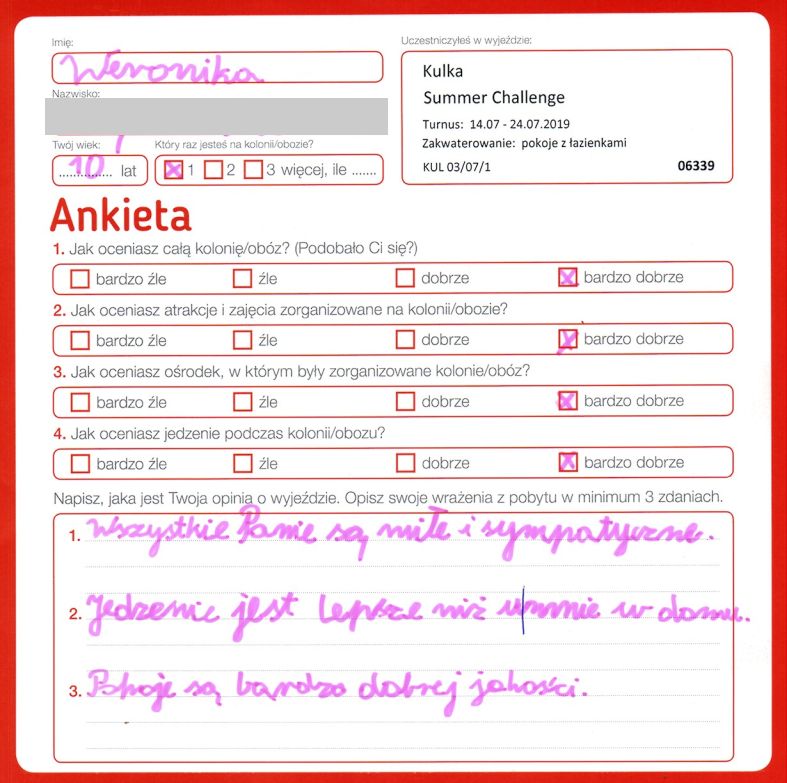 Imię:
Weronika
Uczestniczyłeś w wyjeździe:
Kulka
Summer Challenge
Turnus: 14.07 - 24.07.2019
Zakwaterowanie: pokoje z łazienkami
KUL 03/07/1 06339
Nazwisko:
Twój wiek: Który raz jesteś na kolonii/obozie?
10 lat 1 2 3 więcej, ile .......
Ankieta
1. Jak oceniasz całą kolonię/obóz? (Podobało Ci się?)
bardzo źle źle dobrze bardzo dobrze
2. Jak oceniasz atrakcje i zajęcia zorganizowane na kolonii/obozie?
bardzo źle źle dobrze bardzo dobrze
3. Jak oceniasz ośrodek, w którym były zorganizowane kolonie/obóz?
bardzo źle źle dobrze bardzo dobrze
4. Jak oceniasz jedzenie podczas kolonii/obozu?
bardzo źle źle dobrze bardzo dobrze
Napisz, jaka jest Twoja opinia o wyjeździe. Opisz swoje wrażenia z pobytu w minimum 3 zdaniach.
1. Wszystkie Panie są miłe i sympatyczne.
2. Jedzenie jest lepsze niż u mnie w domu.
3. Pokoje są bardzo dobrej jakości.